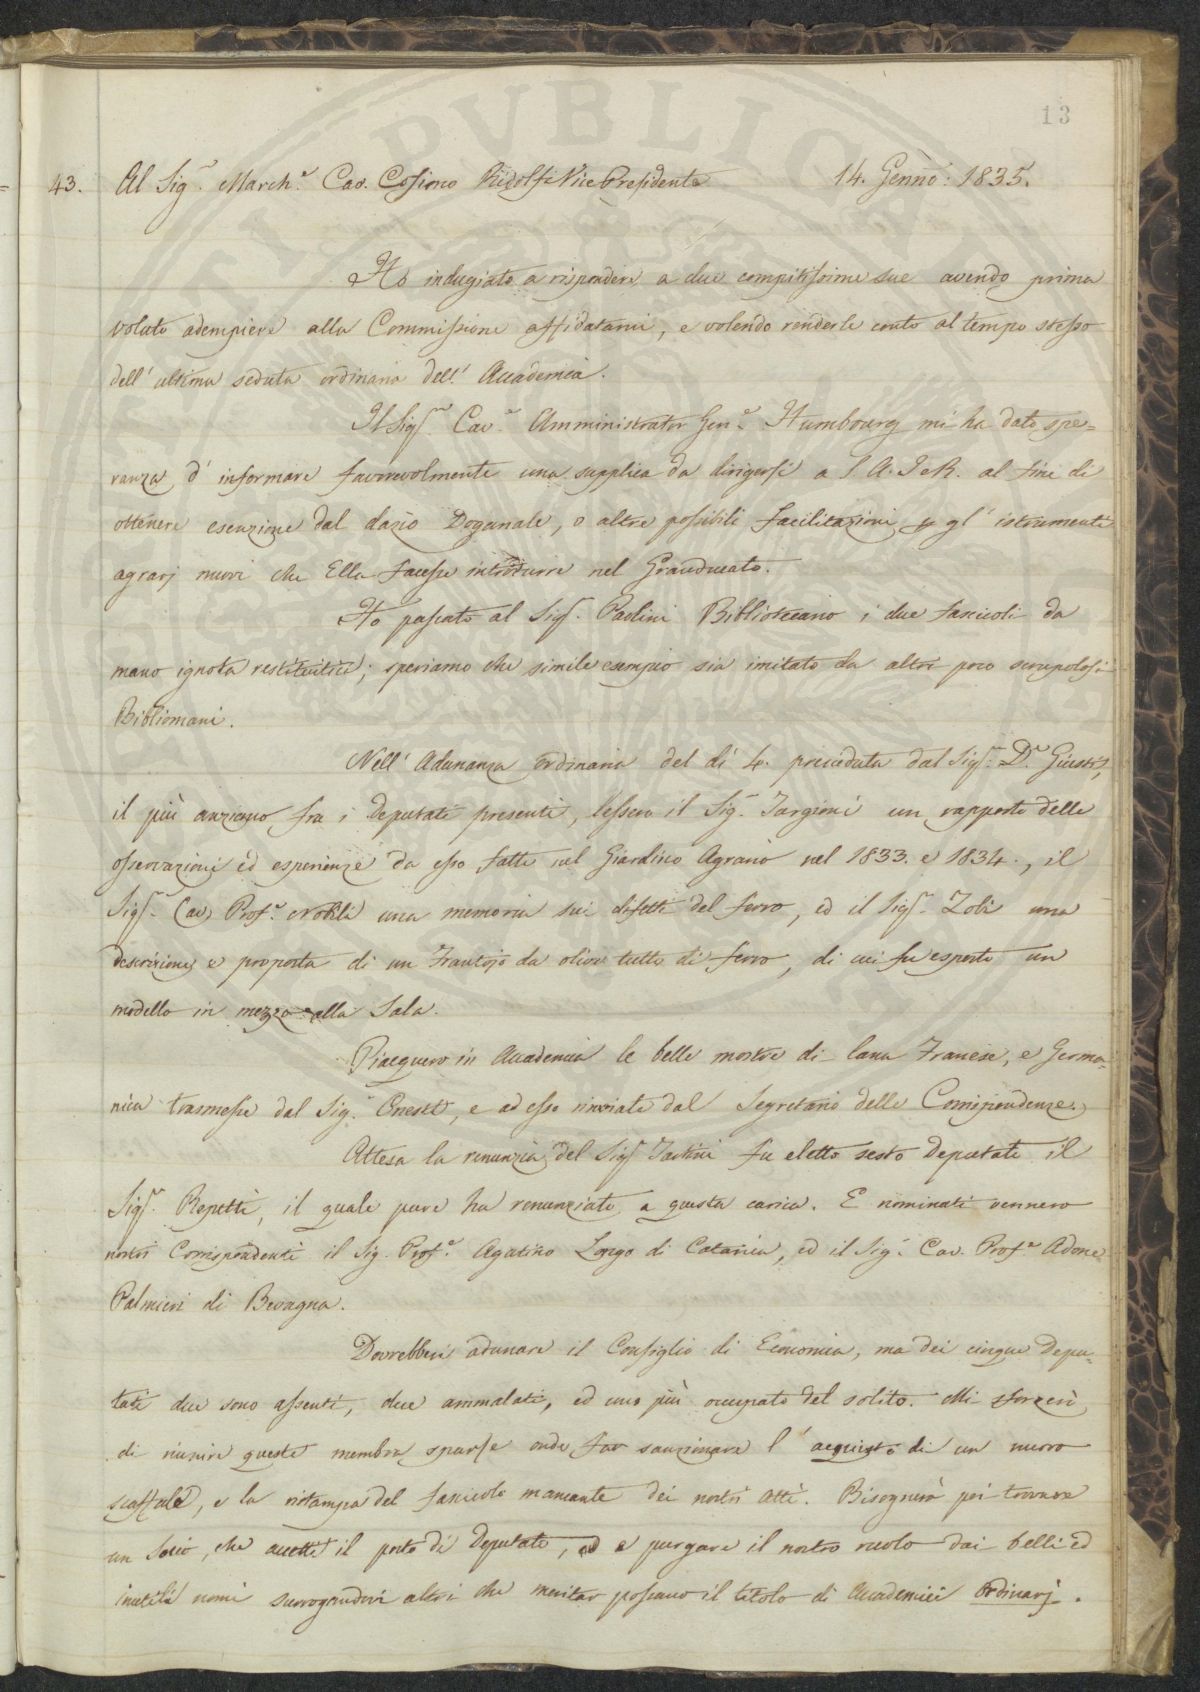 13
43. Al Sig.r March.e Cav. Cosimo Ridolfi Vice Presidente 14. Genno: 1835.
Ho indugiato a rispondere a due compitissime sue avendo prima
voluto adempiere alla Commissione affidatami, e volendo renderle conto al tempo stesso
dell' ultima seduta ordinaria dell' Accademia.
Il Sig.r Cav.e Amministrator Gen.e Humbourg mi ha dato spe=
ranza d' informare favorevolmente una supplica da dirigersi a S. A. I e R. al fine di
ottenere esenzione dal dazio Doganale, o altre possibili facilitazioni p gl' istrumenti
agrarj nuovi che Ella facesse introdurre nel Granducato.
Ho passato al Sig.r Paolini Bibliotecario i due fascicoli da
mano ignota restituitici; speriamo che simile esempio sia imitato da altri poco scrupolosi
Bibliomani.
Nell' Adunanza ordinaria del dì 4. preceduta dal Sig.r D.r Giusti,
il più anziano fra i Deputati presenti, lessero il Sig.r Targioni un rapporto delle
osservazioni ed esperienze da esso fatte nel Giardino Agrario nel 1833. e 1834., il
Sig.r Cav. Prof.e Nobili una memoria sui difetti del ferro, ed il Sig.r Zobi una
descrizione e proposta di un Frantojo da olive tutto di ferro, di cui fu esposto un
modello in mezzo alla Sala.
Piacquero in Accademia le belle mostre di lana Franese, e Germa=
nica trasmesse dal Sig.r Onesti, e ad esso rinviate dal Segretario delle Corrispondenze.
Attesa la renunzia del Sig.r Tartini fu eletto sesto Deputato il
Sig.r Repetti, il quale pure ha renunziato a questa carica. E nominati vennero
nostri Corrispondenti il Sig. Prof.e Agatino Longo di Catania, ed il Sig.r Cav. Prof.e Adone
Palmieri di Bevagna.
Dovrebbesi adunare il Consiglio di Economia, ma dei cinque Depu=
tati due sono assenti, due ammalati, ed uno più occupato del solito. Mi sforzerò
di riunire queste membra sparse onde far sanzionare l' acquisto di un nuovo
scaffale, e la ristampa del fascicolo mancante dei nostri Atti. Bisognerà poi trovare
un Socio, che accetti il posto di Deputato, ed e purgare il nostro ruolo dai belli ed
inutili nomi surrogandovi altri che meritar possano il titolo di Accademici Ordinarj.